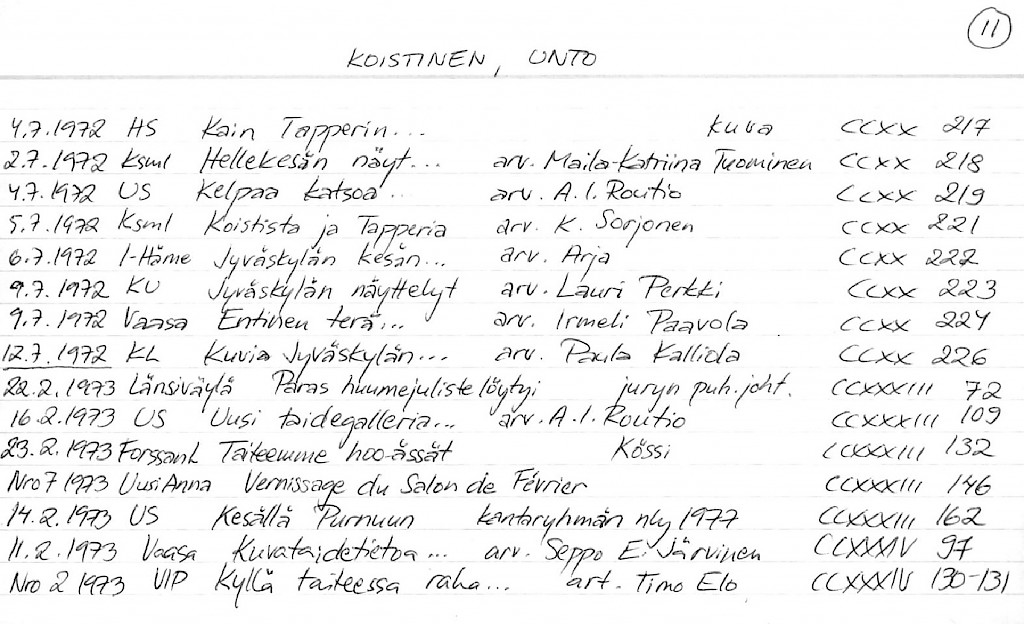 11
KOISTINEN, UNTO
4.7.1972 HS Kain Tapperin... kuva CCXX 217
2.7.1972 Ksml Hellekesän näyt... arv. Maila-Katriina Tuominen CCXX 218
4.7.1972 US Kelpaa katsoa... arv. A.I. Routio CCXX 219
5.7.1972 Ksml Koistista ja Tapperia arv. K. Sorjonen CCXX 221
6.7.1972 I-Häme Jyväskylän kesän... arv. Arja CCXX 222
9.7.1972 KU Jyväskylän näyttelyt arv. Lauri Perkki CCXX 223
9.7.1972 Vaasa Entinen terä... arv. Irmeli Paavola CCXX 224
12.7.1972 KL Kuvia Jyväskylän... arv. Paula Kallida CCXX 226
22.2.1973 Länsiväylä Paras huumejuliste löytyi juryn puh.joht. CCXXXIII 72
16.2.1973 US Uusi taidegalleria... arv. A.I. Routio CCXXXIII 109
23.2.1973 Forssanl Taiteemme hoo-ässät Kössi CCXXXIII 132
Nro 7 1973 Uusi Anna Vernissage du Salon de Février CCXXXIII 146
14.2.1973 US Kesällä Purnuun kantaryhmän nly 1977 CCXXXIII 162
11.2.1973 Vaasa Kuvataidetietoa... arv. Seppo E. Järvinen CCXXXIV 97
Nro 2 1973 VIP Kyllä taiteessa raha... art. Timo Elo CCXXXIV 130-131